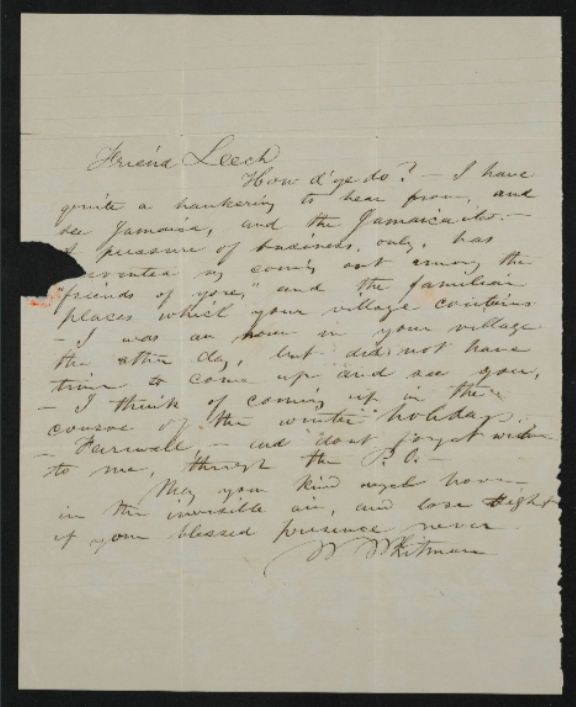 Friend Leech
How d'ye do? — I have
quite a hankering to hear from, and
see Jamaica, and the Jamaicaites. —
A pressure of business, only, has
evented my coming out among the
"friends of yore," and the familiar
places which your village contains.
— I was an hour in your village
the other day, but did not have
time to come up and see you,
— I think of coming up in the
course of the winter holidays.
— Farewell — and dont forget
to me, through the P.O. —
May your kind angel hover
in the invisible air, and lose sight
of your blessed presence never
W Whitman